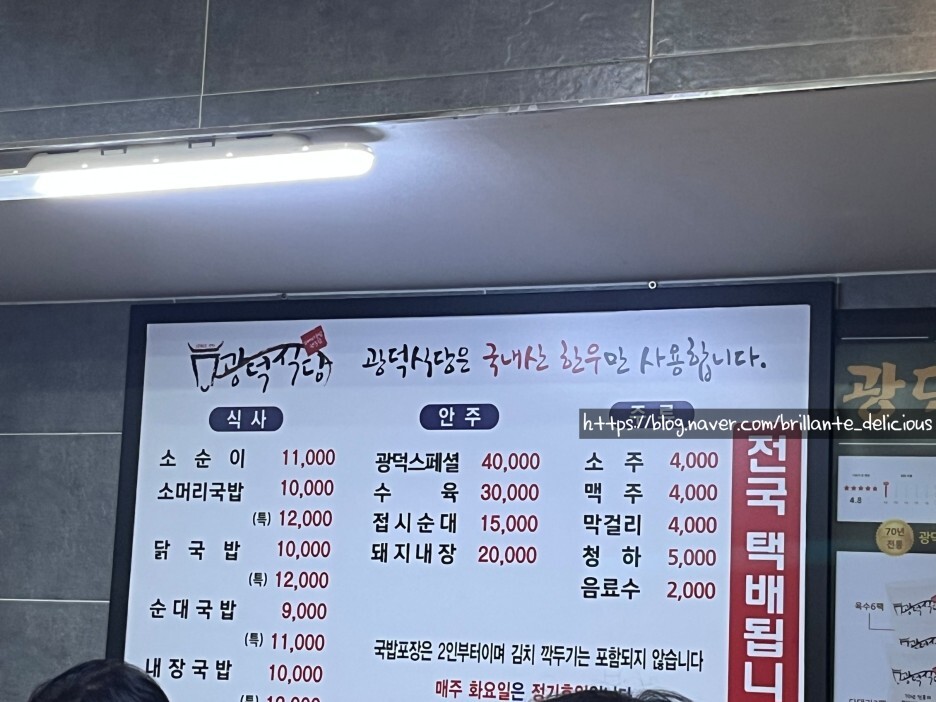 광덕식당
광덕식당은 국내산 한우만 사용합니다.
식사
소순이 11,000
소머리국밥 10,000
(특) 12,000
닭국밥 10,000
(특) 12,000
순대국밥 9,000
(특) 11,000
내장국밥 10,000
(특)
안주
광덕스페셜 40,000
수육 30,000
접시순대 15,000
돼지내장 20,000
주류
소주 4,000
맥주 4,000
막걸리 4,000
청하 5,000
음료수 2,000
국밥포장은 2인부터이며 김치 깍두기는 포함되지 않습니다
매주 화요일은 정기휴일입니다
전국 택배됩니
https://blog.naver.com/brillante_delicious
광덕
4.8
70년
전통
광덕
육수6팩
광덕식당